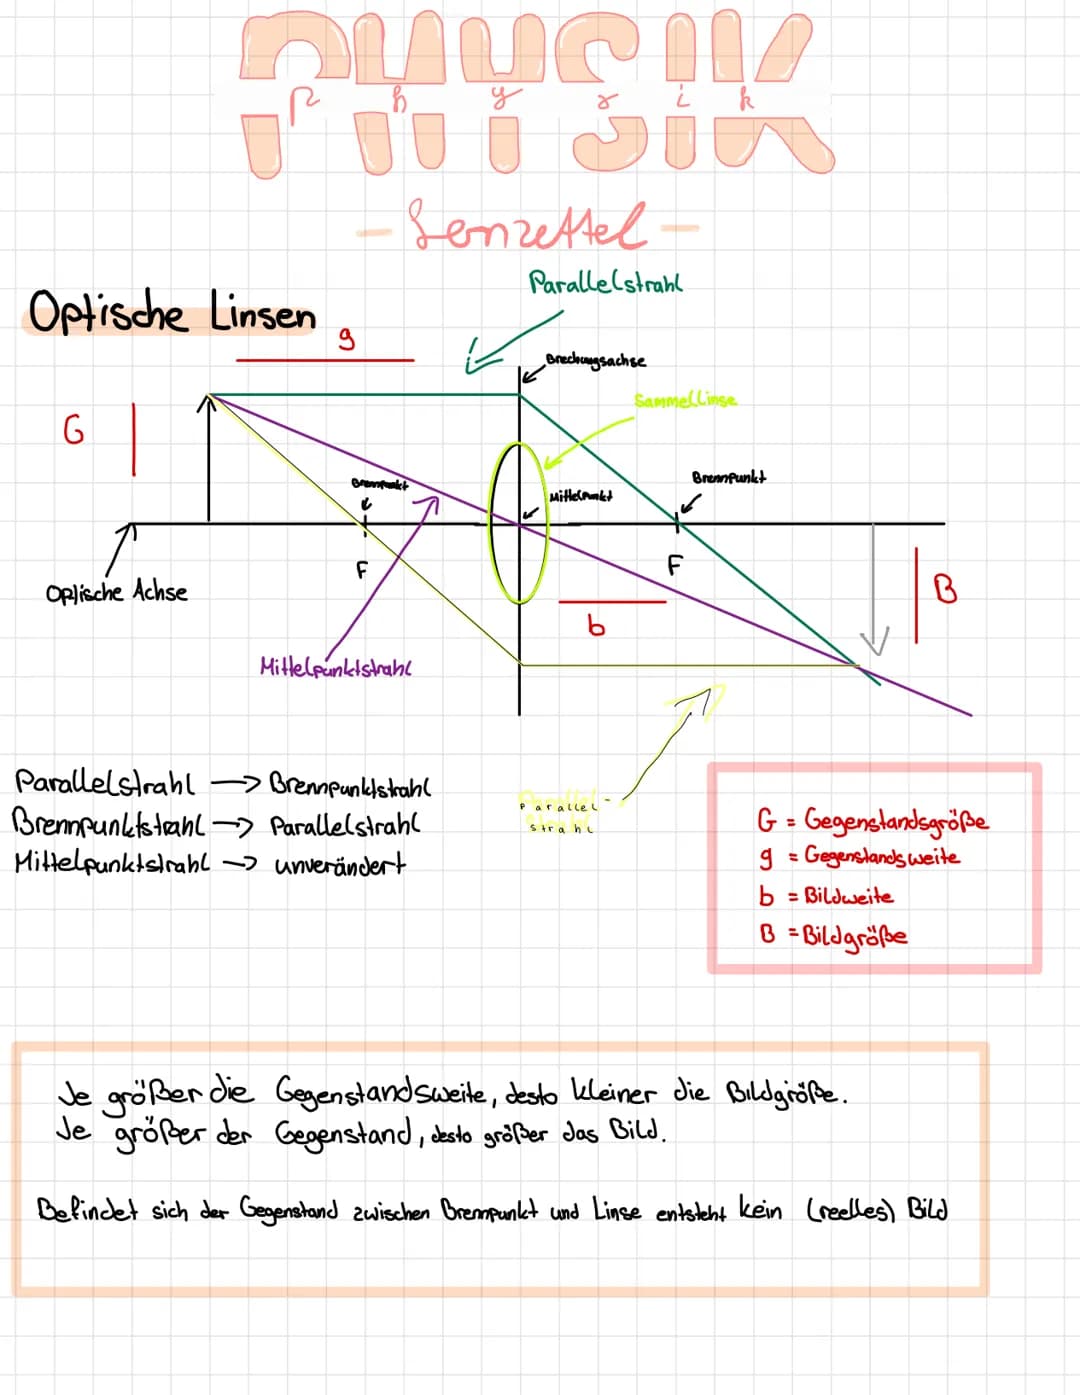 PHYSIK
Physik
- Lernzettel -
Parallelstrahl
Optische Linsen
g
Brechungsachse
Sammellinse
G
Brennpunkt
Brennpunkt
Mittelpunkt
F
F
Optische Achse
B
b
Mittelpunktstrahl
Parallelstrahl → Brennpunktstrahl
Brennpunktstrahl → Parallelstrahl
Mittelpunktstrahl → unverändert
Parallel-
strahl
G = Gegenstandsgröße
g = Gegenstandsweite
b = Bildweite
B = Bildgröße
Je größer die Gegenstandsweite, desto kleiner die Bildgröße.
Je größer der Gegenstand, desto größer das Bild.
Befindet sich der Gegenstand zwischen Brennpunkt und Linse entsteht kein (reelles) Bild